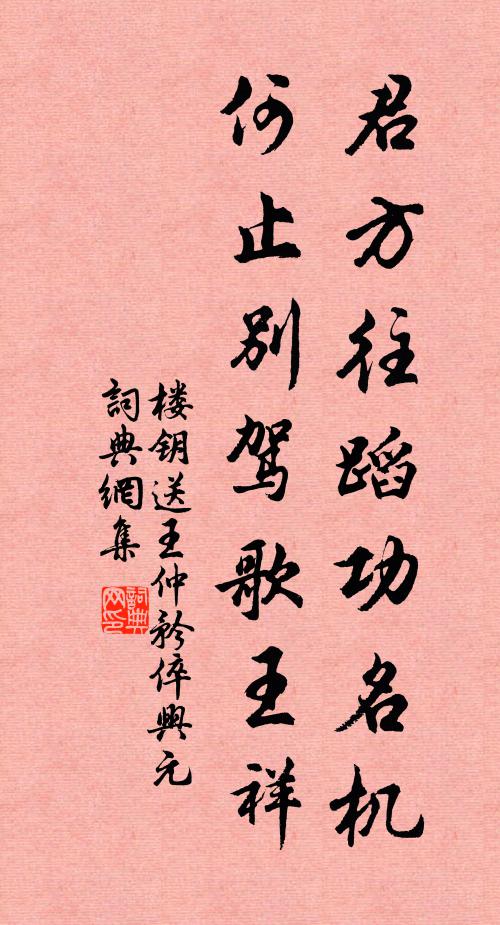 君方往蹈功名机
何止别驾歌王祥
楼钥送王仲矜倅興元
詞典網集
詞典
网印